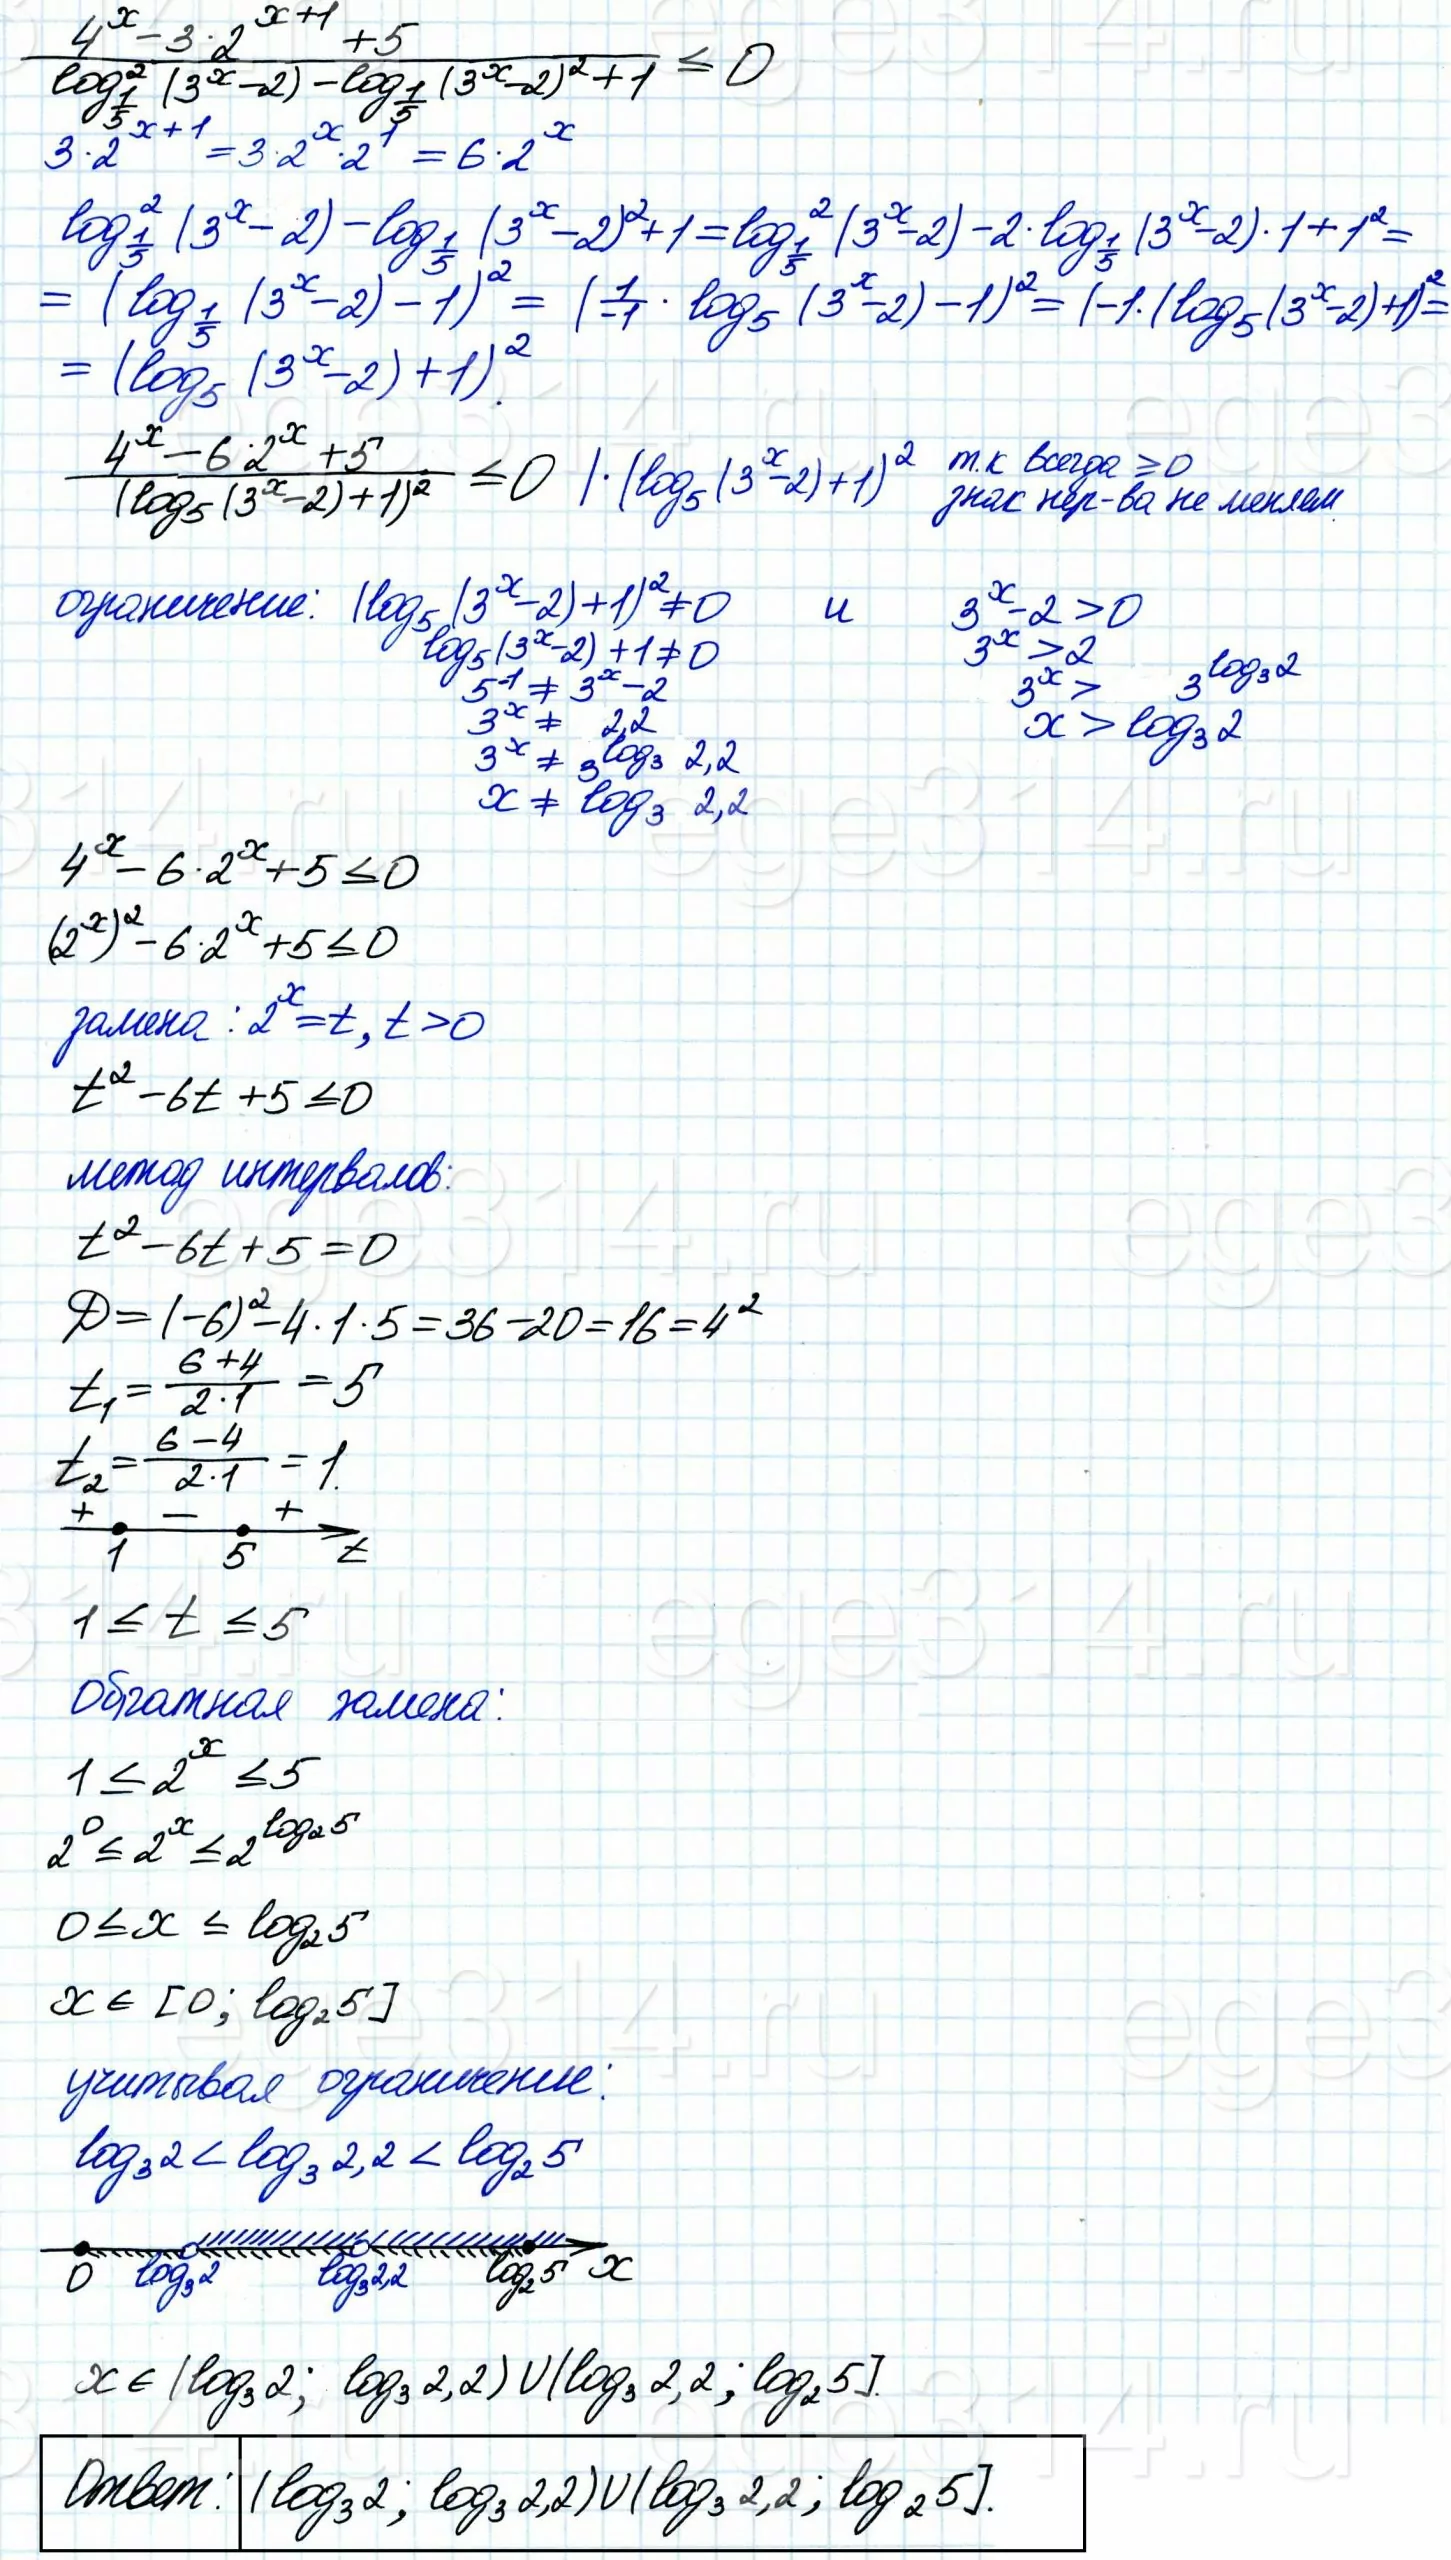 (4^x − 3·2^(x+1) + 5) / (log²_(1/5) (3^x − 2) − log_(1/5) (3^x − 2)² + 1) ≤ 0
3·2^(x+1) = 3·2^x·2^1 = 6·2^x
log²_(1/5) (3^x − 2) − log_(1/5) (3^x − 2)² + 1 = log²_(1/5) (3^x − 2) − 2·log_(1/5) (3^x − 2)·1 + 1² =
= (log_(1/5) (3^x − 2) − 1)² = (1/−1 · log₅ (3^x − 2) − 1)² = (−1·(log₅ (3^x − 2) + 1)² =
= (log₅ (3^x − 2) + 1)².
(4^x − 6·2^x + 5) / (log₅ (3^x − 2) + 1)² ≤ 0 | · (log₅ (3^x − 2) + 1)² т.к всегда ≥ 0
знак нер-ва не меняем
ограничение: (log₅ (3^x − 2) + 1)² ≠ 0 и 3^x − 2 > 0
log₅ (3^x − 2) + 1 ≠ 0 3^x > 2
5^(−1) ≠ 3^x − 2 3^x > 3^(log₃ 2)
3^x ≠ 2,2 x > log₃ 2
3^x ≠ 3^(log₃ 2,2)
x ≠ log₃ 2,2
4^x − 6·2^x + 5 ≤ 0
(2^x)² − 6·2^x + 5 ≤ 0
замена: 2^x = t, t > 0
t² − 6t + 5 ≤ 0
метод интервалов:
t² − 6t + 5 = 0
D = (−6)² − 4·1·5 = 36 − 20 = 16 = 4²
t₁ = (6 + 4)/(2·1) = 5
t₂ = (6 − 4)/(2·1) = 1.
+ − +
1 5 t
1 ≤ t ≤ 5
Обратная замена:
1 ≤ 2^x ≤ 5
2^0 ≤ 2^x ≤ 2^(log₂ 5)
0 ≤ x ≤ log₂ 5
x ∈ [0; log₂ 5]
учитывая ограничение:
log₃ 2 < log₃ 2,2 < log₂ 5
0 log₃ 2 log₃ 2,2 log₂ 5 x
x ∈ (log₃ 2; log₃ 2,2) ∪ (log₃ 2,2; log₂ 5].
Ответ: (log₃ 2; log₃ 2,2) ∪ (log₃ 2,2; log₂ 5].
ege314.ru